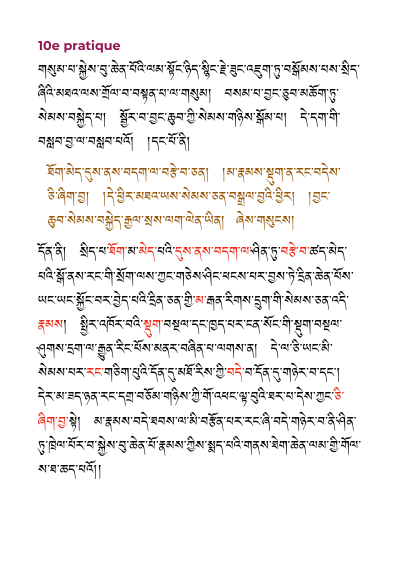 10e pratique
གསུམ་པ་སྐྱེས་བུ་ཆེན་པོའི་ལམ་སྟོང་ཉིད་སྙིང་རྗེ་ཟུང་འཇུག་ཏུ་བསྒོམས་པས་སྲིད་
ཞིའི་མཐའ་ལས་གྲོལ་བ་བསྟན་པ་ལ་གསུམ། བསམ་པ་བྱང་ཆུབ་མཆོག་ཏུ་
སེམས་བསྐྱེད་པ། སྦྱོར་བ་བྱང་ཆུབ་ཀྱི་སེམས་གཉིས་སྒོམ་པ། དེ་དག་གི་
བསླབ་བྱ་ལ་བསླབ་པའོ། །དང་པོ་ནི།
ཐོག་མེད་དུས་ནས་བདག་ལ་བརྩེ་བ་ཅན། །མ་རྣམས་སྡུག་ན་རང་བདེས་
ཅི་ཞིག་བྱ། །དེ་ཕྱིར་མཐའ་ཡས་སེམས་ཅན་བསྒྲལ་བྱའི་ཕྱིར། །བྱང་
ཆུབ་སེམས་བསྐྱེད་རྒྱལ་སྲས་ལག་ལེན་ཡིན། ཞེས་གསུངས།
དོན་ནི། སྲིད་པ་ཐོག་མ་མེད་པའི་དུས་ནས་བདག་ལ་ཤིན་ཏུ་བརྩེ་བ་ཚད་མེད་
པའི་སྒོ་ནས་རང་གི་སྲོག་ལས་ཀྱང་གཅེས་ཤིང་ཕངས་པར་བྱས་ཏེ་དྲིན་ཆེན་པོས་
ཡང་ཡང་སྐྱོང་བར་བྱེད་པའི་དྲིན་ཅན་གྱི་མ་རྒན་རིགས་དྲུག་གི་སེམས་ཅན་འདི་
རྣམས། སྤྱིར་འཁོར་བའི་སྡུག་བསྔལ་དང་ཁྱད་པར་ངན་སོང་གི་སྡུག་བསྔལ་
ཤུགས་དྲག་ལ་རྒྱུན་རིང་པོས་མནར་བཞིན་པ་ལགས་ན། དེ་ལ་ཅི་ཡང་མི་
སེམས་པར་རང་གཅིག་པུའི་དོན་དུ་མཐོ་རིས་ཀྱི་བདེ་བ་དོན་དུ་གཉེར་བ་དང་།
དེར་མ་ཟད་ཉན་རང་དགྲ་བཅོམ་གཉིས་ཀྱི་གོ་འཕང་ལྟ་བུའི་ཐར་པ་དེས་ཀྱང་ཅི་
ཞིག་བྱ་སྟེ། མ་རྣམས་བདེ་ཐབས་ལ་མི་བརྩོན་པར་རང་ཞི་བདེ་གཉེར་བ་ནི་ཤིན་
ཏུ་ཁྲེལ་པོར་བ་སྐྱེས་བུ་ཆེན་པོ་རྣམས་ཀྱིས་སྨད་པའི་གནས་ཐེག་ཆེན་ལམ་གྱི་གོལ་
ས་ཐ་ཆད་པའོ། །